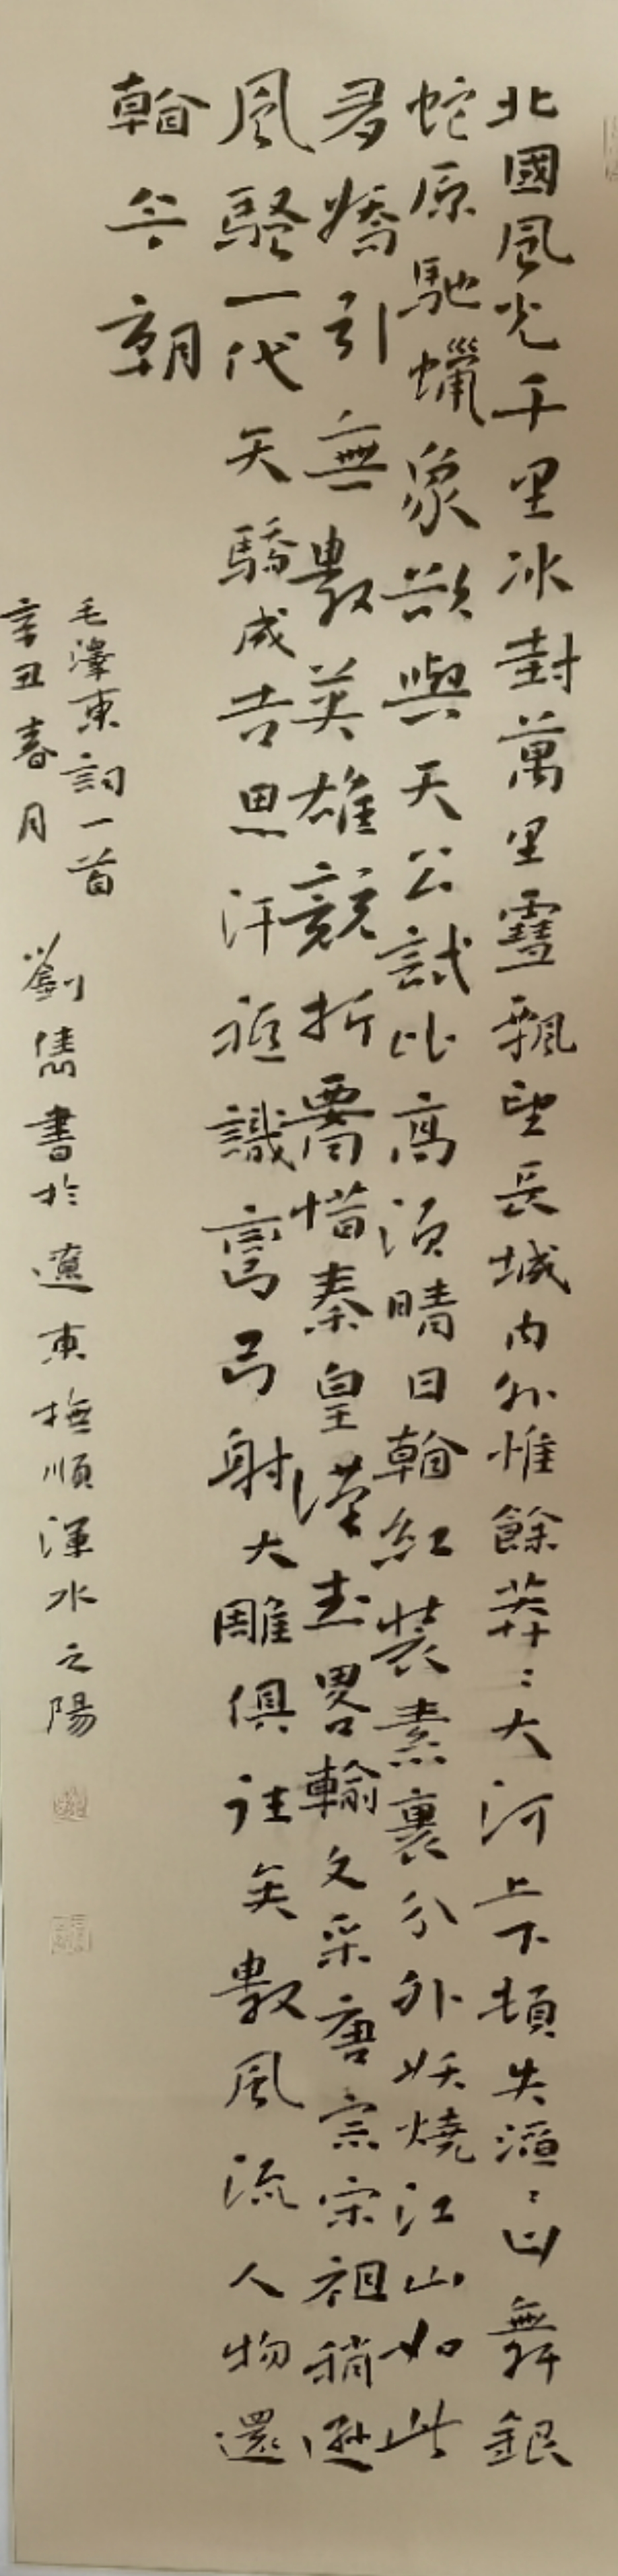 北國風光千里冰封萬里雪飄望長城內外惟餘莽〻大河上下頓失滔〻山舞銀
蛇原馳蠟象欲與天公試比高須晴日翰紅裝素裹分外妖燒江山如此
多嬌引無數英雄競折腰惜秦皇漢武畧輸文采唐宗宋祖稍遜
風騷一代天驕成吉思汗祗識彎弓射大雕俱往矣數風流人物還
翰今朝
毛澤東詞一首
辛丑春月
劉儁書於遼東撫順渾水之陽